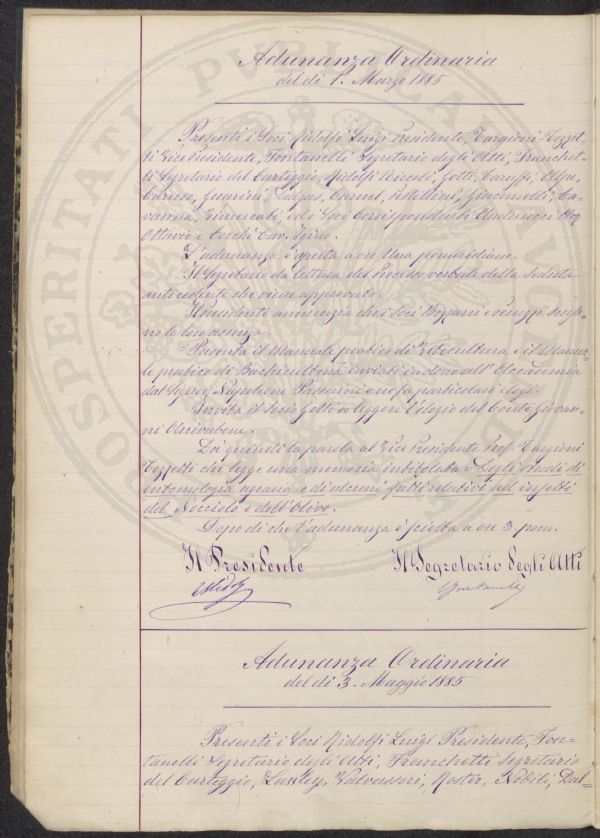 Adunanza Ordinaria
del dì 1. Marzo 1885
Presenti i Soci Ridolfi Luigi Presidente, Targioni Tozzet-
ti Vice Presidente, Fontanelli Segretario degli Atti, Franchet-
ti Segretario del Carteggio, Ridolfi Niccolò, Gotti, Caruffi, Alpe,
Caruso, Guarini, Dalgas, Caruel, Pestellini, Giacomelli, Ca-
vanna, Vimercati, ed i Soci Corrispondenti Antinoci
Ottavio e Cecchi Cav. Igino.
L'adunanza è aperta a ore Una pomeridiane.
Il Segretario dà lettura del Processo verbale della Seduta
antecedente che viene approvato.
Il Presidente annunzia che i Soci Bizzarri e Peruzzi scusa-
no la loro assenza.
Presenta il Manuale pratico di Viticultura e il Manua-
le pratico di Bachicultura inviati in dono all'Accademia
dal Signor Napoleone Passerini e ne fa particolari elogi.
Invita il Socio Gotti a leggere l'elogio del Conte Giovan-
ni Arrivabene.
Dà quindi la parola al Vice Presidente Prof. Targioni
Tozzetti che legge una memoria intitolata = Degli studi di
entomologia agraria e di alcuni fatti relativi ad insetti
del Nocciolo e dell'Olivo.
Dopo di che l'adunanza è sciolta a ore 3. pom.
Il Presidente Il Segretario degli Atti
Ridolfi Fontanelli
Adunanza Ordinaria
del dì 3. Maggio 1885
Presenti i Soci Ridolfi Luigi Presidente, Fon-
tanelli Segretario degli Atti, Franchetti Segretario
del Carteggio, Lawley, Valvassori, Roster, Nobili, Dal-